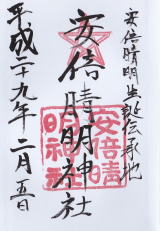 安倍晴明生誕伝承地
安倍晴明神社
平成二十九年二月五日
安倍晴
明神社